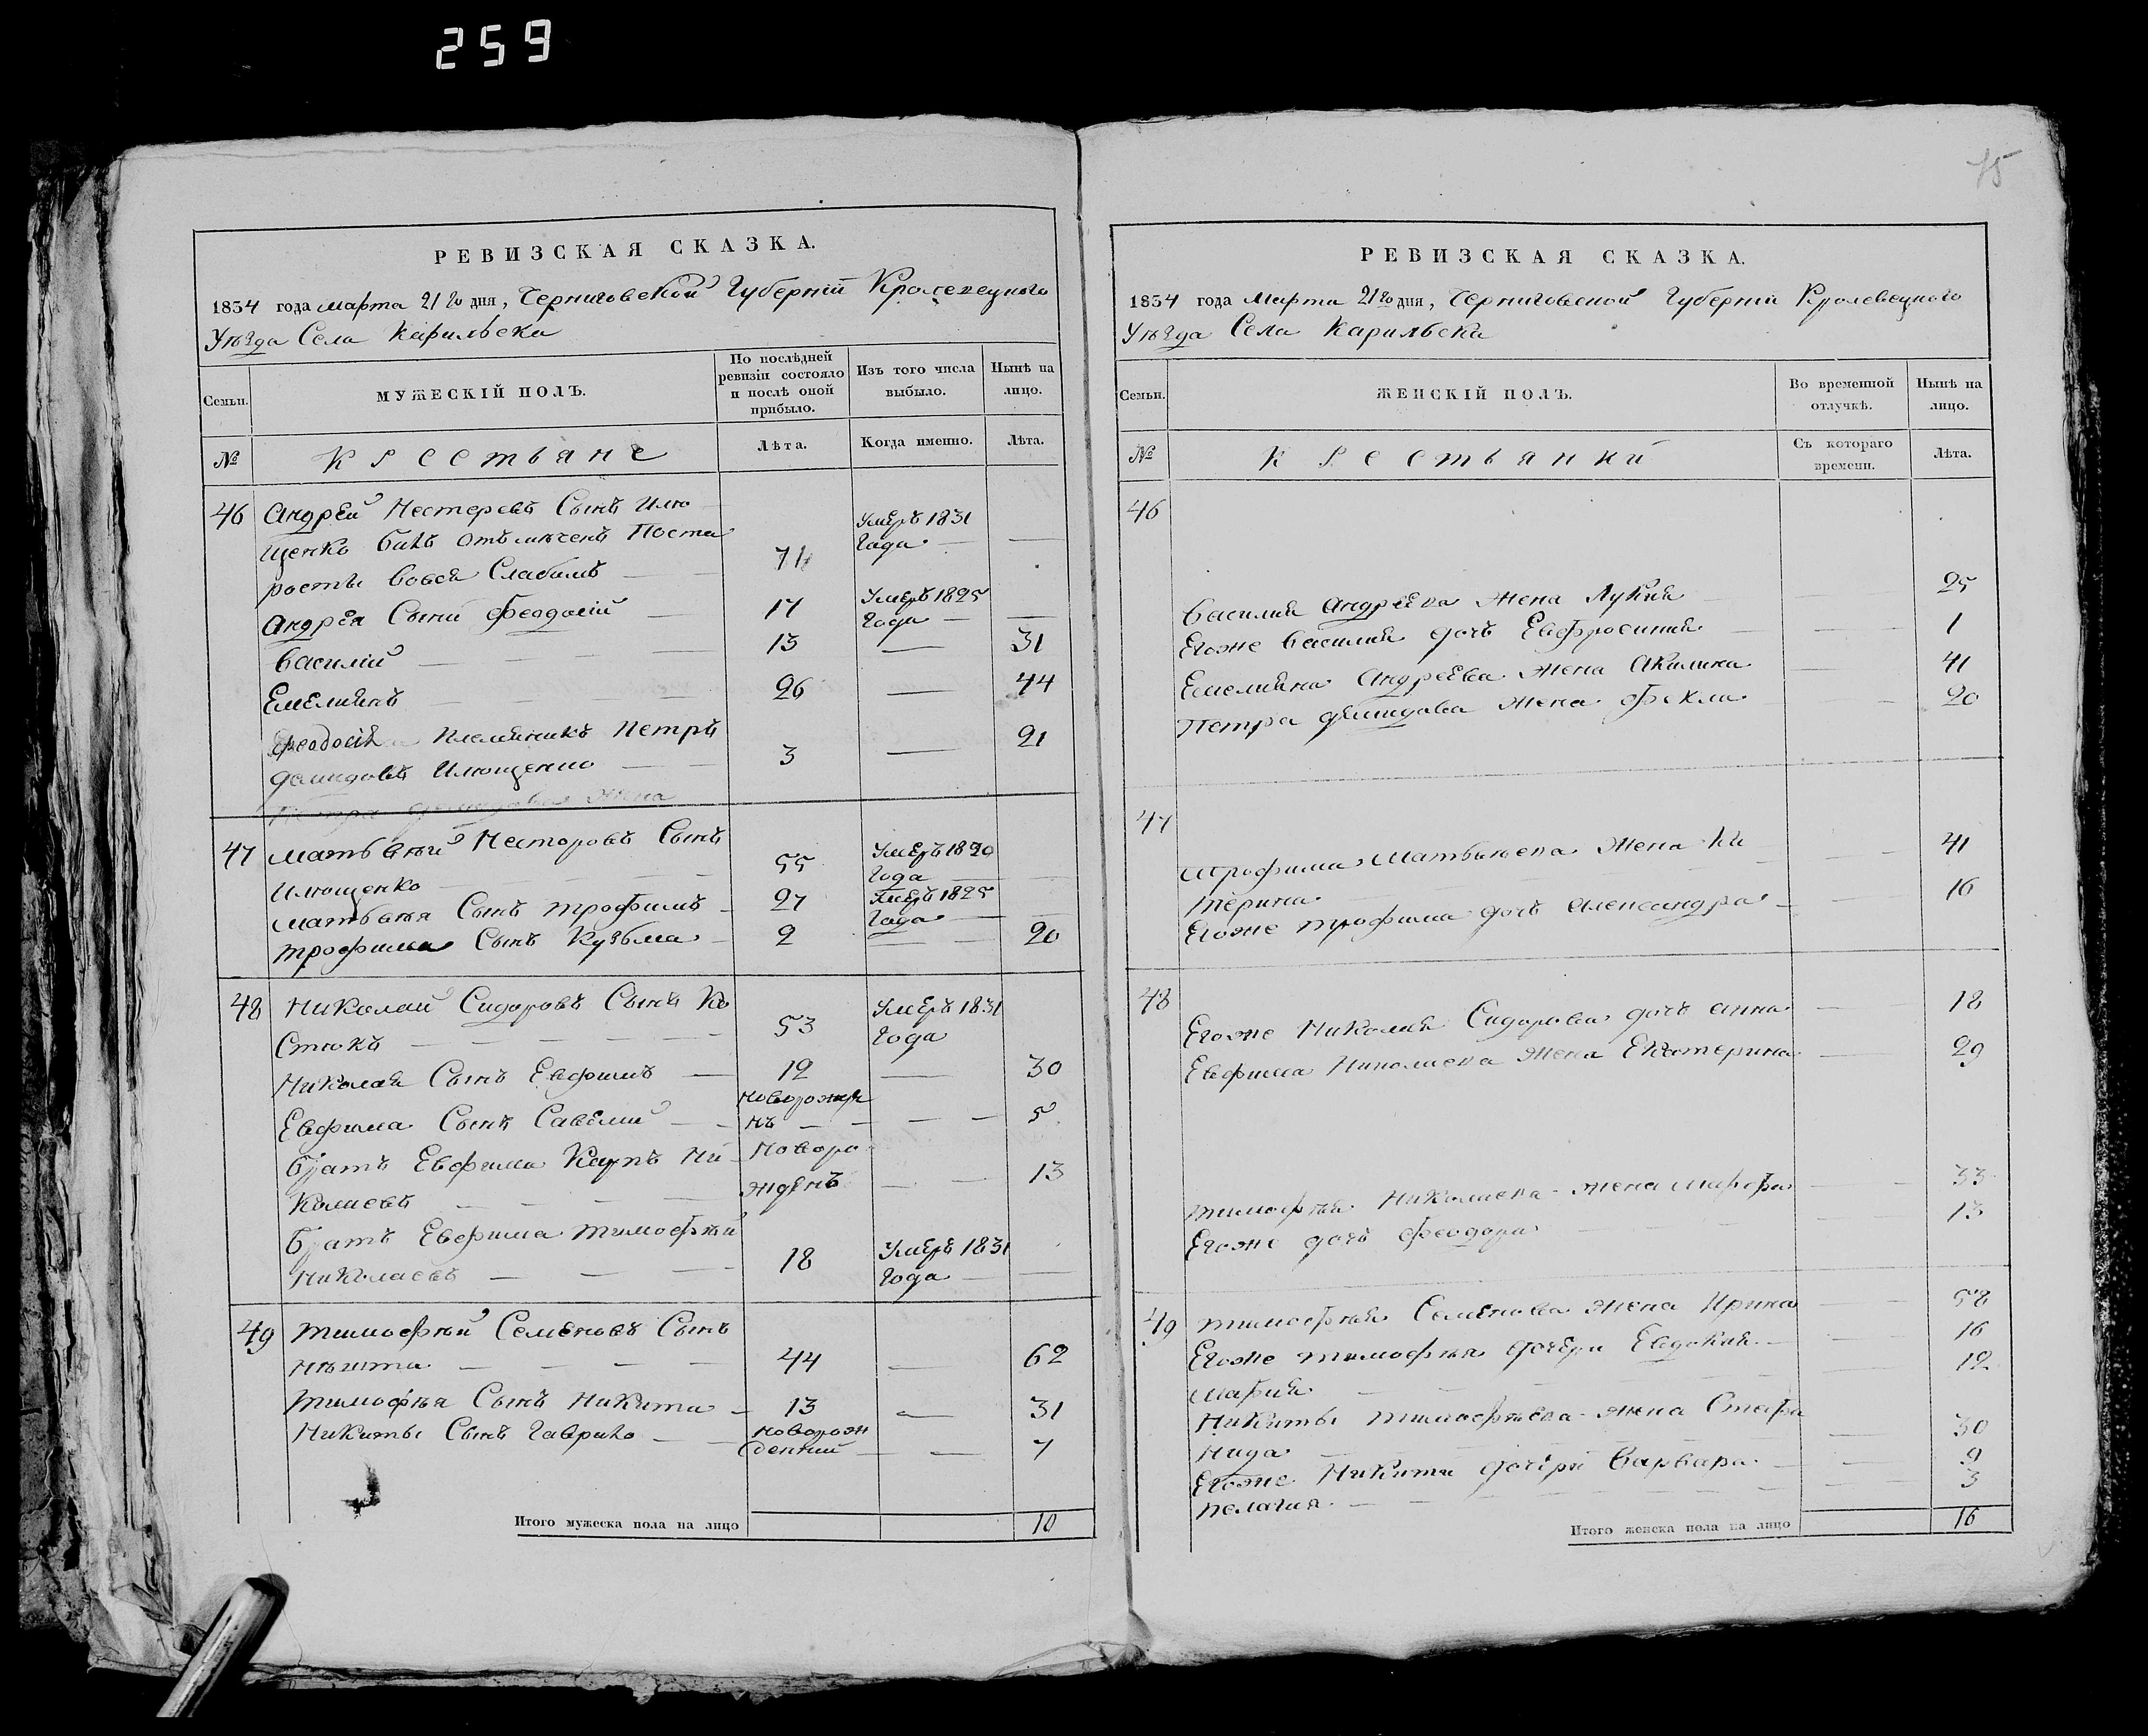 259
75
РЕВИЗСКАЯ СКАЗКА.
1834 года марта 21го дня, Черниговской Губерніи Кролевецкого
Уѣзда Села Карильска
Семьи.
МУЖЕСКІЙ ПОЛЪ.
По послѣдней ревизіи состояло и послѣ оной прибыло.
Изъ того числа выбыло.
Нынѣ на лицо.
№
Крестьяне
Лѣта.
Когда именно.
Лѣта.
46 Андрей Нестеревъ Сынъ Илю
щенко
71 Умеръ 1831 Года —
Андрея Сыни Феодосій — 17 Умеръ 1825 Года —
Василій — 13 — 31
Емелиянъ — 26 — 44
Феодосія Племянникъ Петръ
Демидовъ Илющенко — 3 — 21
47 Матвѣй Несторовъ Сынъ
Илющенко — 55 Умеръ 1820 Года —
Матвѣя Сынъ Трофимъ — 27 Умеръ 1825 Года —
Трофима Сынъ Кузьма — 2 — 20
48 Николай Сидоровъ Сынъ Ко
стюкъ — 53 Умеръ 1831 Года
Николая Сынъ Евфимъ — 12 — 30
Евфима Сынъ Савелий — новорожде
нъ — 5
Братъ Евфима Карпъ Ни Новоро
колаевъ — жденъ — 13
Братъ Евфима Тимофѣй
Николаевъ — 18 Умеръ 1831 Года —
49 Тимофѣй Семеновъ Сынъ
44 — 62
Тимофѣя Сынъ Никита — 13 — 31
Никиты Сынъ Гаврило — новорож
денний — 7
Итого мужеска пола на лицо 10
РЕВИЗСКАЯ СКАЗКА.
1834 года Марта 21го дня, Черниговской Губерніи Кролевецкого
Уѣзда Села Карильска
Семьи.
ЖЕНСКІЙ ПОЛЪ.
Во временной отлучкѣ.
Нынѣ на лицо.
№
Крестьянки
Съ котораго времени.
Лѣта.
46
Василия Андреева жена Лукия — 25
Егоже Василия дочь Евфросиния — 1
Емелияна Андреева жена Акилина — 41
Петра Демидова жена Фекла — 20
47
Трофима Матвѣева жена Ка
терина — 41
Егоже Трофима дочь Александра — 16
48
Егоже Николая Сидорова дочь Анна — 18
Евфима Николаева жена Екатерина — 29
Тимофѣя Николаева жена Марфа — 33
Егоже дочь Феодора — 13
49 Тимофѣя Семенова жена Ирина — 58
Егоже Тимофѣя дочери Евдокия — 16
Мария — 12
Никиты Тимофѣева жена Степа
нида — 30
Егоже Никити дочери Варвара — 9
Пелагия — 3
Итого женска пола на лицо 16